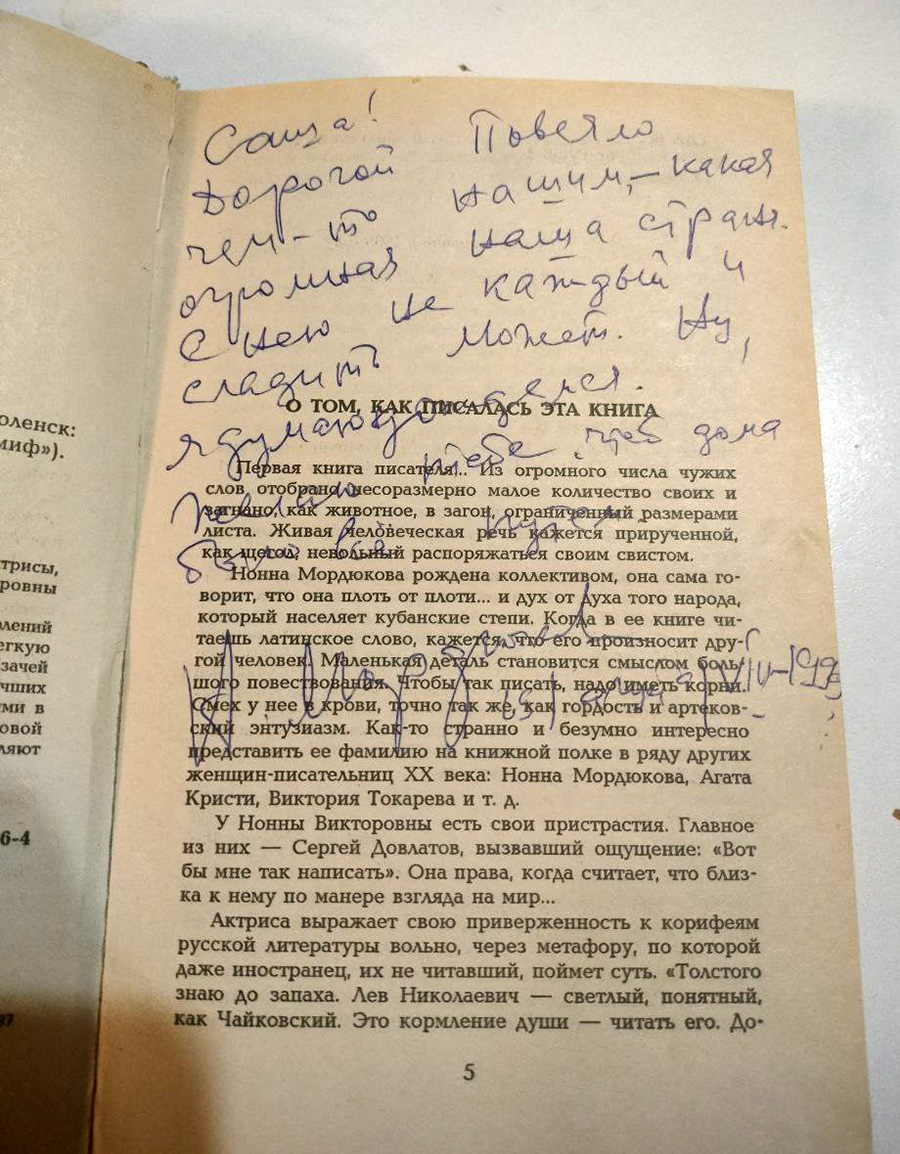 Саша!
Дорогой Повеяло
чем-то нашим, – какая
огромная наша стран.
С нею не каждый и
сладить может. Ну,
я думаю
О ТОМ, КАК ПИСАЛАСЬ ЭТА КНИГА
Желаю тебе, чтоб дома
было всё
Н. Мордюкова
Первая книга писателя... Из огромного числа чужих
слов отобрано несоразмерно малое количество своих и
загнано, как животное, в загон, ограниченный размерами
листа. Живая человеческая речь кажется прирученной,
как щегол, невольный распоряжаться своим свистом.
Нонна Мордюкова рождена коллективом, она сама го-
ворит, что она плоть от плоти... и дух от духа того народа,
который населяет кубанские степи. Когда в ее книге чи-
таешь латинское слово, кажется, что его произносит дру-
гой человек. Маленькая деталь становится смыслом боль-
шого повествования. Чтобы так писать, надо иметь корни.
Смех у нее в крови, точно так же, как гордость и артеков-
ский энтузиазм. Как-то странно и безумно интересно
представить ее фамилию на книжной полке в ряду других
женщин-писательниц XX века: Нонна Мордюкова, Агата
Кристи, Виктория Токарева и т. д.
У Нонны Викторовны есть свои пристрастия. Главное
из них — Сергей Довлатов, вызвавший ощущение: «Вот
бы мне так написать». Она права, когда считает, что близ-
ка к нему по манере взгляда на мир...
Актриса выражает свою приверженность к корифеям
русской литературы вольно, через метафору, по которой
даже иностранец, их не читавший, поймет суть. «Толстого
знаю до запаха. Лев Николаевич — светлый, понятный,
как Чайковский. Это кормление души — читать его. До-
5
оленск:
миф»).
трисы,
ровны
лений
егкую
зачей
чших
ми в
овой
ляют
6-4
97